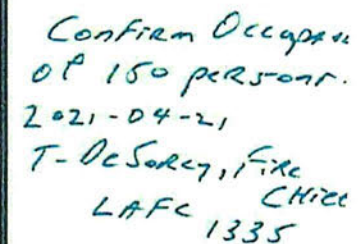 Confirm Occupancy
of 150 persons.
2021-04-21
T-DeSorcy, Fire
Chief
LAFC
1335